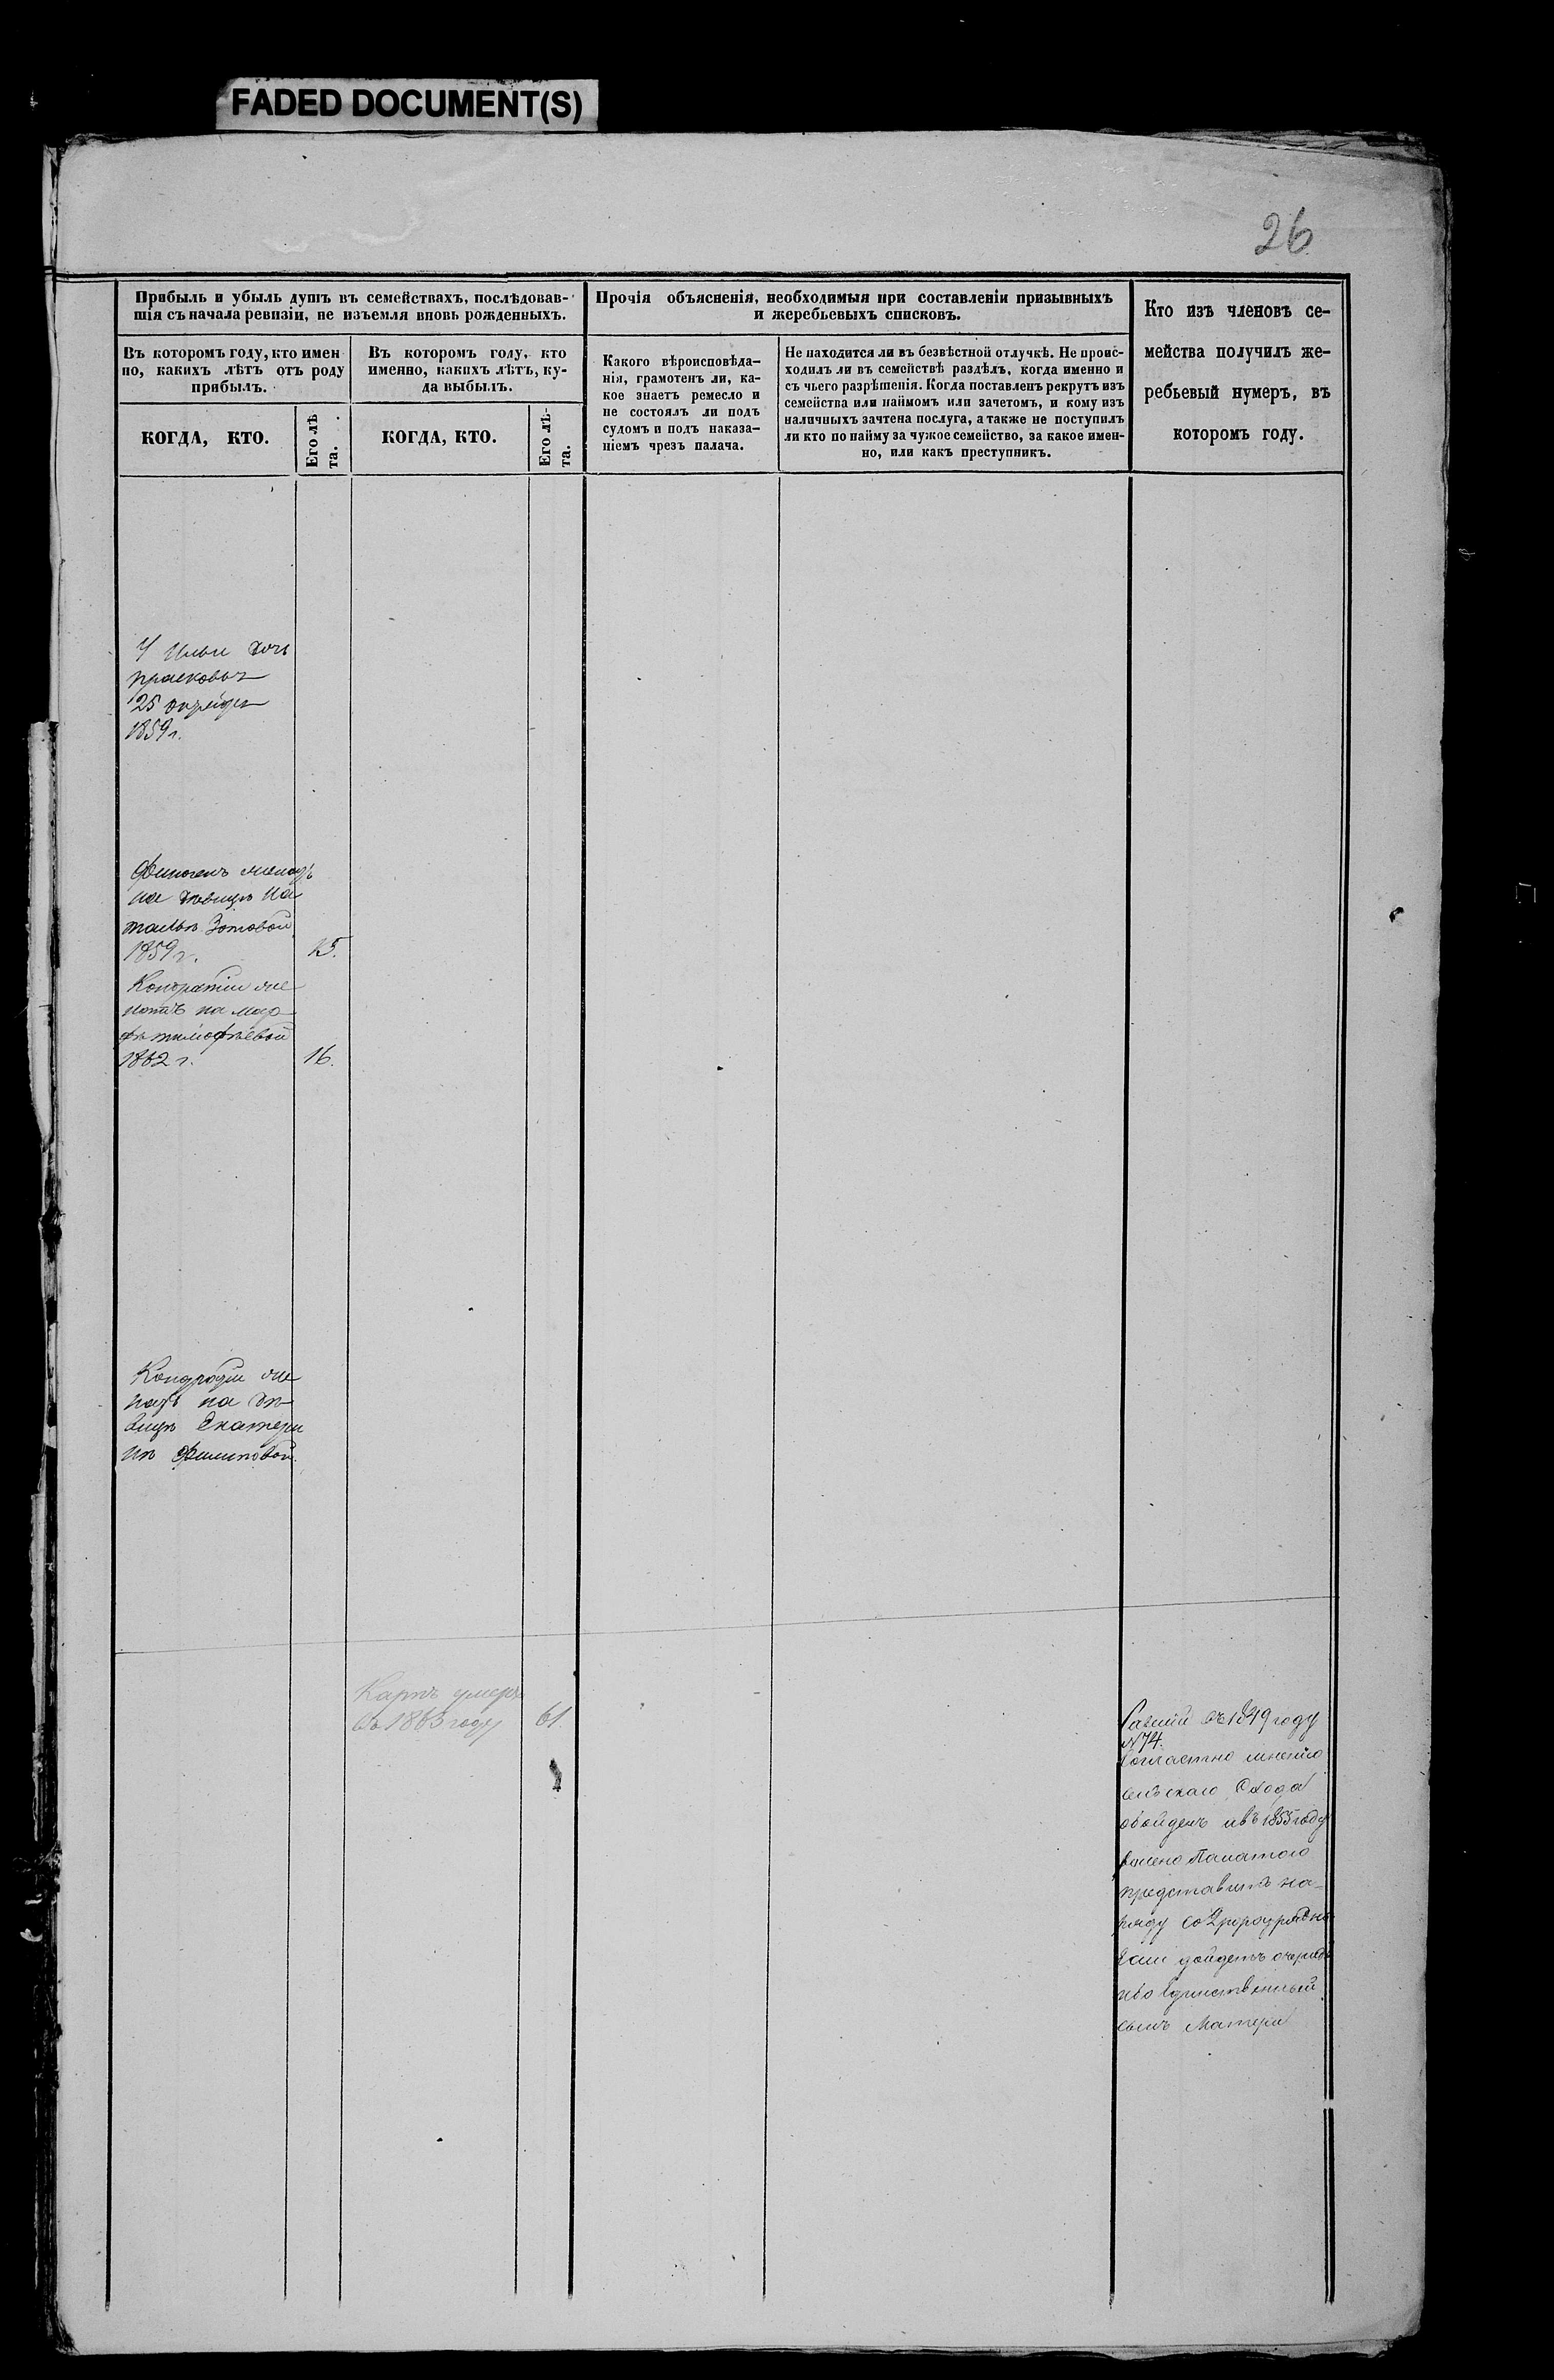 FADED DOCUMENT(S)
26
Прибыль и убыль душъ въ семействахъ, послѣдовав-
шія съ начала ревизіи, не изъемля вновь рожденныхъ.
Прочія объясненія, необходимыя при составленіи призывныхъ
и жеребьевыхъ списковъ.
Кто изъ членовъ се-
мейства получилъ же-
ребьевый нумеръ, въ
которомъ году.
Въ которомъ году, кто имен
но, какихъ лѣтъ отъ роду
прибылъ.
Въ которомъ году, кто
именно, какихъ лѣтъ, ку-
да выбылъ.
Какого вѣроисповѣда-
нія, грамотенъ ли, ка-
кое знаетъ ремесло и
не состоялъ ли подъ
судомъ и подъ наказа-
ніемъ чрезъ палача.
Не находится ли въ безвѣстной отлучкѣ. Не проис-
ходилъ ли въ семействѣ раздѣлъ, когда именно и
съ чьего разрѣшенія. Когда поставленъ рекрутъ изъ
семейства или наймомъ или зачетомъ, и кому изъ
наличныхъ зачтена послуга, а также не поступилъ
ли кто по найму за чужое семейство, за какое имен-
но, или какъ преступникъ.
КОГДА, КТО.
Его лѣ
та.
КОГДА, КТО.
Его лѣ-
та.
У Ильи дочь
прасковья
25
1859 г.
Финогенъ женатъ
на дѣвицѣ На
тальѣ Зотовой
1859 г.
Кондратiй же
натъ на мар
фѣ тимофѣевой
1862 г. 16.
Кондратiй же
натъ на дѣ
вицѣ Екатери
нѣ Филиповой.
Карпъ умеръ
въ 1863 году 61.
въ 1849 году
N 74.
Согластно мнѣнiю
сельскаго Схода
обойденъ и въ 1855 году
велено Палатою
представить на
ряду со
Если дойдетъ очередь
ибо Единственный
сынъ Матери